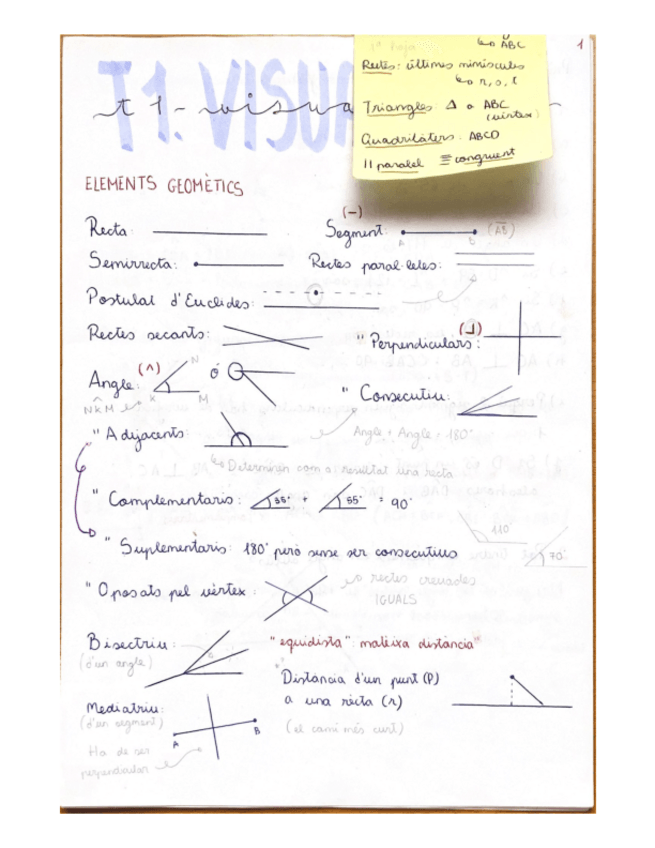 1ª
ABC
1
Rectes: últimes minúscules
r, s, t
Triangles: Δ o ABC
(vèrtex)
Quadrilàters: ABCD
|| paral·lel ≡ congruent
T1. VISUA
t1-visua
ELEMENTS GEOMÈTICS
Recta:
(-)
Segment:
A B (AB)
Semirrecta:
Rectes paral·leles:
Postulat d'Euclides:
Rectes secants:
" Perpendiculars: (⊥)
Angle: (^)
N
K M
NKM
ó
" Consecutiu:
" Adjacents:
Angle + Angle = 180°
Determinen com a resultat una recta
" Complementaris: 35° + 55° = 90°
110°
70°
" Suplementaris: 180° però sense ser consecutius
" Oposats pel vèrtex:
rectes creuades
IGUALS
Bisectriu:
(d'un angle)
"equidista": mateixa distància"
Distància d'un punt (P)
a una recta (r)
(el camí més curt)
Mediatriu:
(d'un segment)
A B
Ha de ser
perpendicular